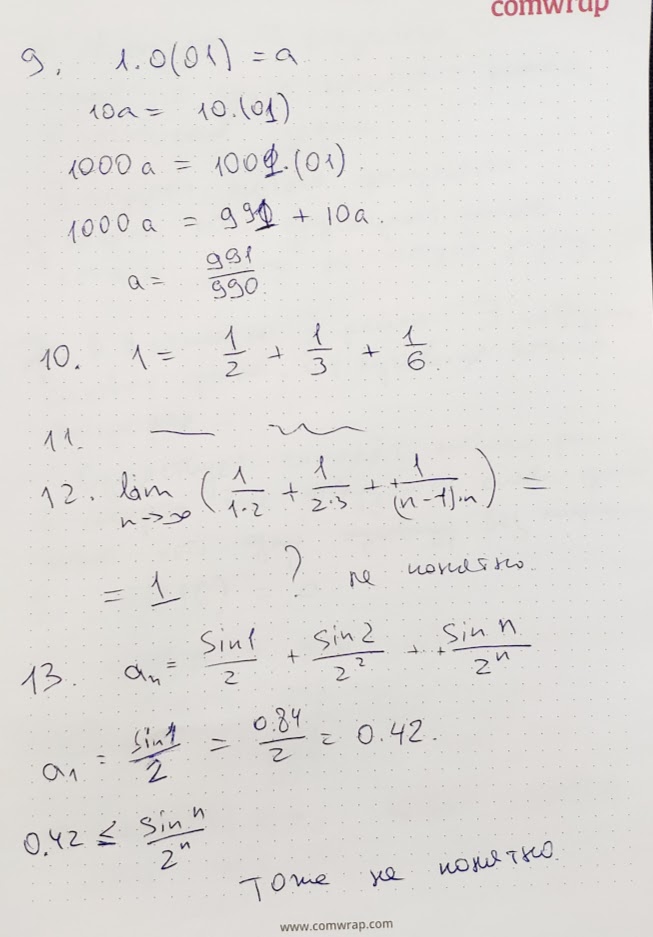 comwrap
9. 1.0(01) = a
10a = 10.(01)
1000a = 1001.(01)
1000a = 991 + 10a.
a = 991/990
10. 1 = 1/2 + 1/3 + 1/6.
11.
12. lim n→∞ (1/1·2 + 1/2·3 + ..+ 1/(n-1)·n) =
= 1 ? не понятно.
13. an = sin1/2 + sin2/2² + ..+ sin n/2ⁿ
a1 = sin1/2 = 0.84/2 = 0.42.
0.42 ≤ sin n/2ⁿ
Тоже не понятно.
www.comwrap.com